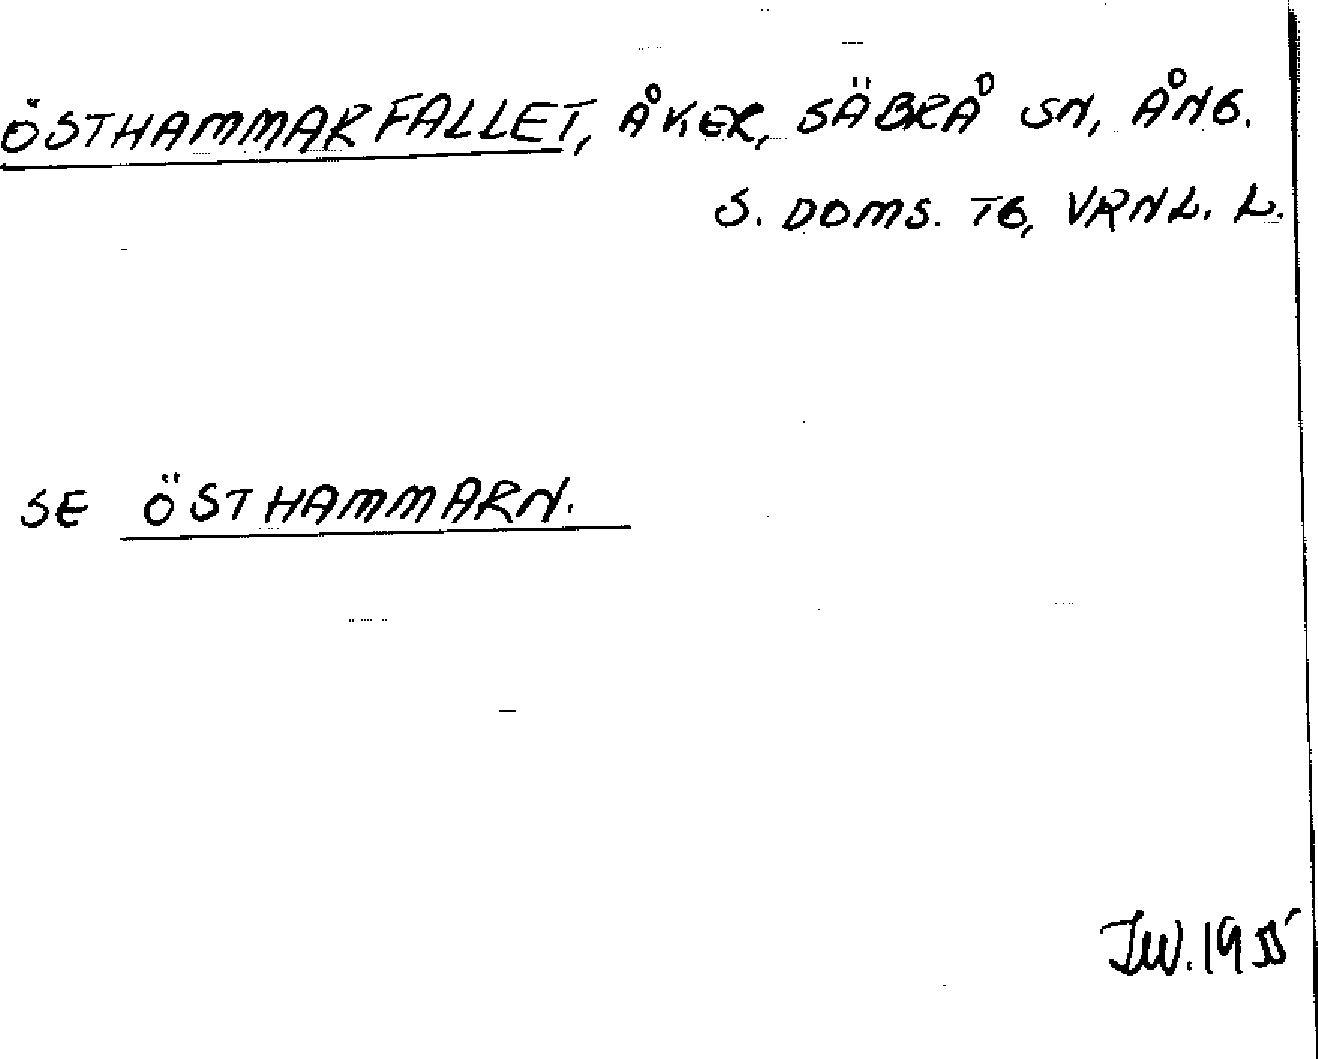 ÖSTHAMMARFALLET, ÅKER, SÄBRÅ SN, ÅNG.
S. DOMS. TG, VRNL. L.
SE ÖSTHAMMARN.
JW. 1955